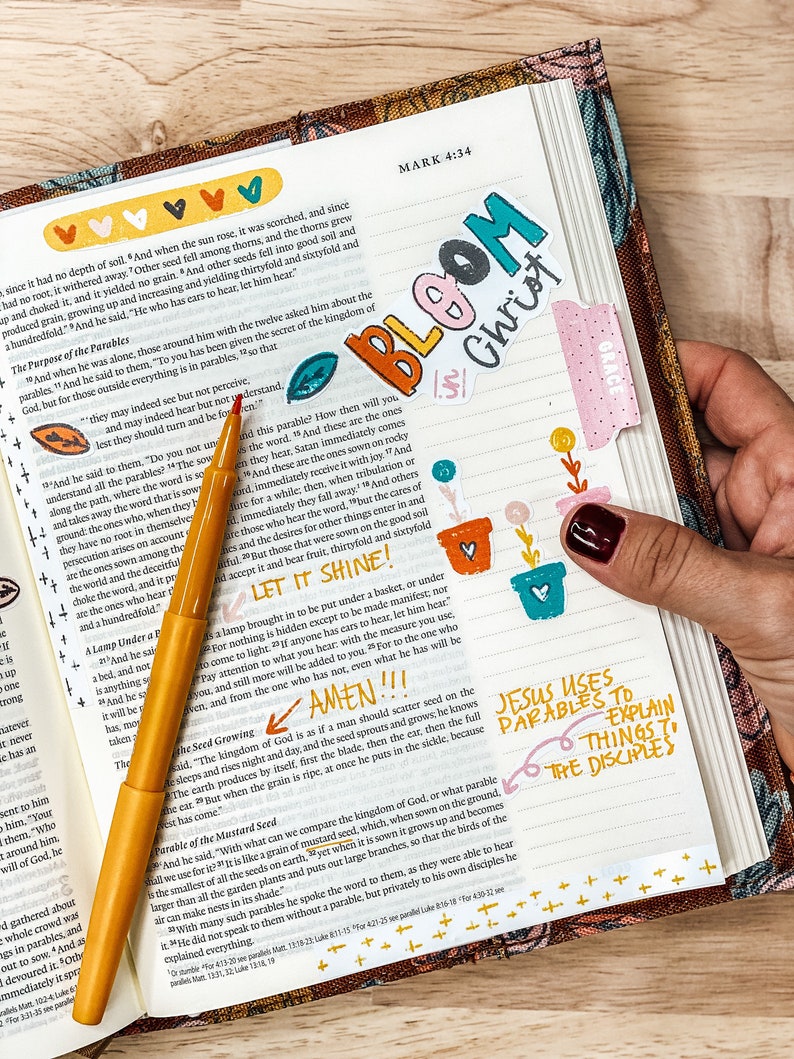 MARK 4:34
BLOOM
in Christ
GRACE
, since it had no depth of soil. 6And when the sun rose, it was scorched, and since
had no root, it withered away. 7Other seed fell among thorns, and the thorns grew
up and choked it, and it yielded no grain. 8And other seeds fell into good soil and
produced grain, growing up and increasing and yielding thirtyfold and sixtyfold and
a hundredfold." 9And he said, "He who has ears to hear, let him hear."
The Purpose of the Parables
10And when he was alone, those around him with the twelve asked him about the
parables. 11And he said to them, "To you has been given the secret of the kingdom of
God, but for those outside everything is in parables, 12so that
"'they may indeed see but not perceive,
and may indeed hear but not understand,
lest they should turn and be
13And he said to them, "Do you not this parable? How then will you
understand all the parables? 14The sow the word. 15And these are the ones
along the path, where the word is so hear, Satan immediately comes
and takes away the word that is sow 16And these are the ones sown on rocky
ground: the ones who, when they h word, immediately receive it with joy. 17And
they have no root in themselves dure for a while; then, when tribulation or
persecution arises on account of immediately they fall away. 18And others
are the ones sown among tho are those who hear the word, 19but the cares of
the world and the deceitful es and the desires for other things enter in and
choke the word, and it pr itful. 20But those that were sown on the good soil
are the ones who hear t accept it and bear fruit, thirtyfold and sixtyfold
and a hundredfold."
LET IT SHINE!
A Lamp Under a
21And he said Is a lamp brought in to be put under a basket, or under
a bed, and not 22For nothing is hidden except to be made manifest; nor
is anything se to come to light. 23If anyone has ears to hear, let him hear."
24And he said "Pay attention to what you hear: with the measure you use,
it will be m you, and still more will be added to you. 25For to the one who
has, mor given, and from the one who has not, even what he has will be
taken
AMEN!!!
the Seed Growing
said, "The kingdom of God is as if a man should scatter seed on the
He sleeps and rises night and day, and the seed sprouts and grows; he knows
The earth produces by itself, first the blade, then the ear, then the full
the ear. 29But when the grain is ripe, at once he puts in the sickle, because
vest has come."
Parable of the Mustard Seed
30And he said, "With what can we compare the kingdom of God, or what parable
shall we use for it? 31It is like a grain of mustard seed, which, when sown on the ground,
is the smallest of all the seeds on earth, 32yet when it is sown it grows up and becomes
larger than all the garden plants and puts out large branches, so that the birds of the
air can make nests in its shade."
33With many such parables he spoke the word to them, as they were able to hear
it. 34He did not speak to them without a parable, but privately to his own disciples he
explained everything.
JESUS USES
PARABLES TO
EXPLAIN
THINGS TO
THE DISCIPLES
Or stumble For 4:13-20 see parallels Matt. 13:18-23; Luke 8:11-15 For 4:21-25 see parallel Luke 8:16-18 For 4:30-32 see
parallels Matt. 13:31, 32; Luke 13:18, 19